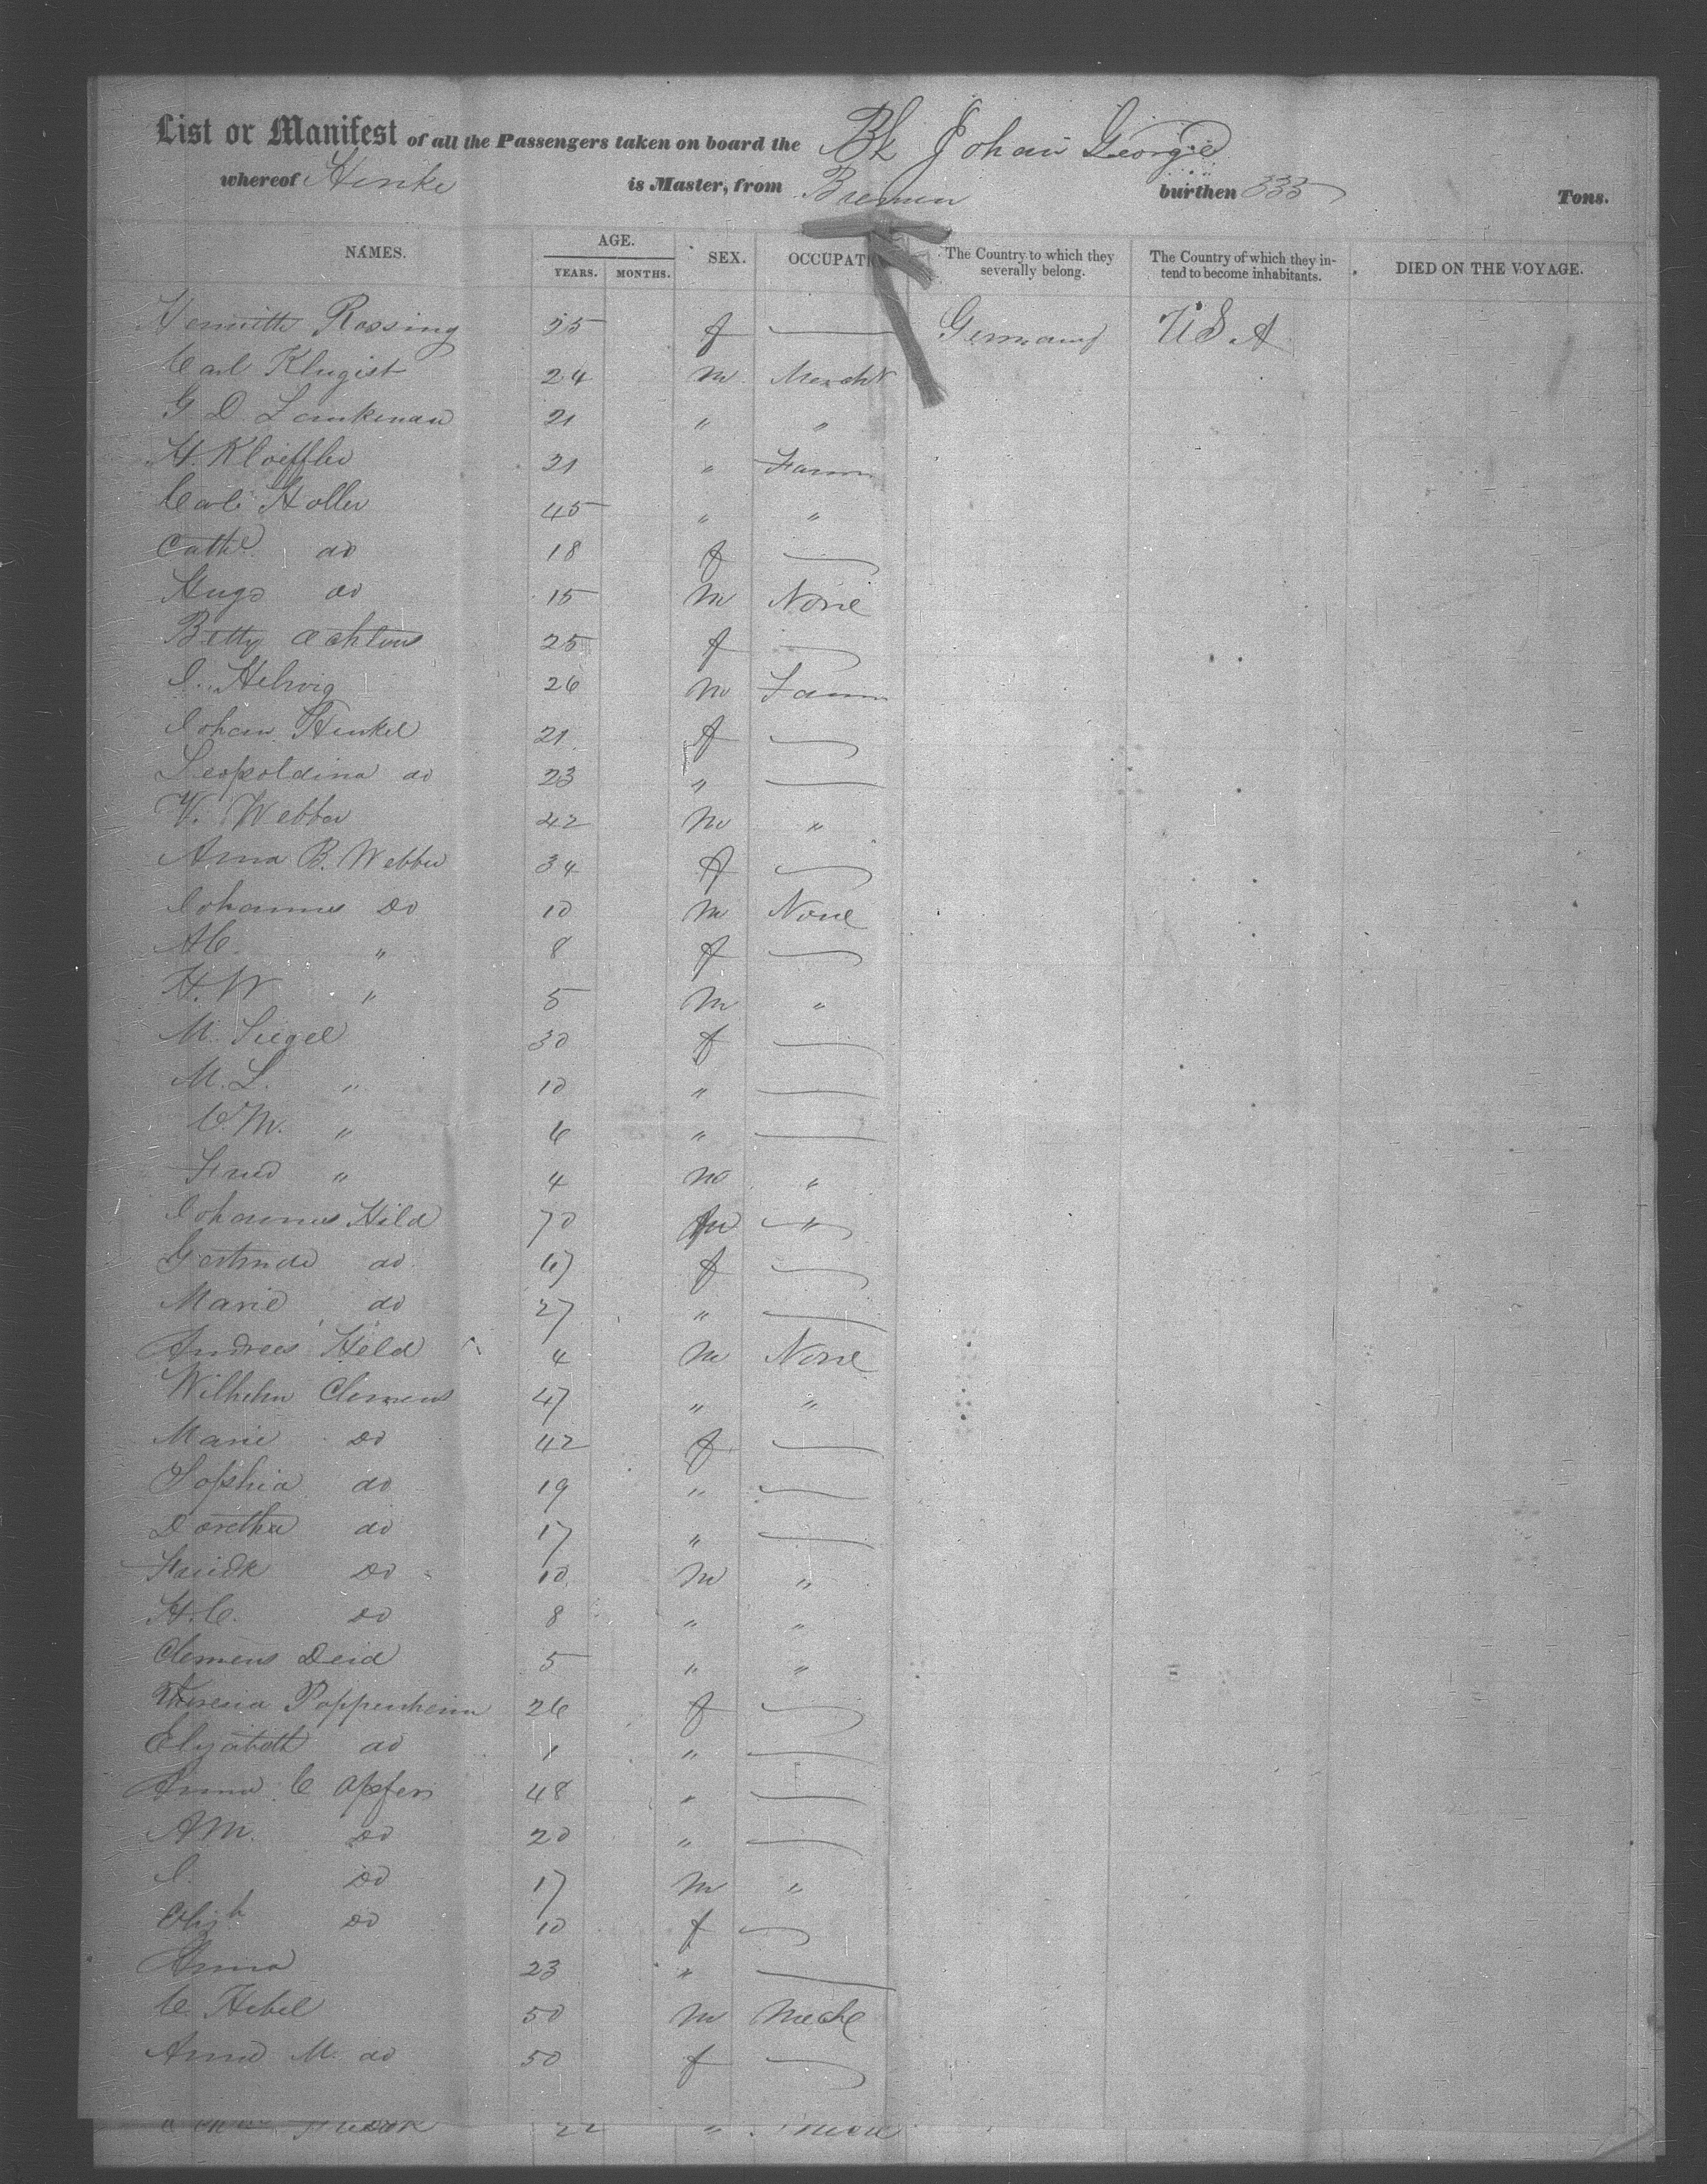 List or Manifest of all the Passengers taken on board the Bk Johan Georgie
whereof Hinke is Master, from Bremen burthen 335 Tons.
NAMES. AGE. YEARS. MONTHS. SEX. OCCUPATI The Country to which they severally belong. The Country of which they intend to become inhabitants. DIED ON THE VOYAGE.
Rossing f Germany U S A
Carl Klugist 24 m Mercht
G D Lankenau 21 " "
H. Kloeffler 21 " Farm
Carl Holler 45 " "
Cathe do 18 f
Hugo do 15 m None
Betty 25 f
I. Helwig 26 m Farm
Johan Henkel 21 f
Leopoldina do 23 "
W. Webber 42 m "
Anna B. Webber 34 f
Johannes Do 10 m None
A C. " 8 f
H. W " 5 m "
M. Siegel 30 f
M. L. " 10 "
C. M. " 6 "
Fried " 4 m "
Johannes Hild 70 m "
Gertrude do 67 f
Marie do 27 "
Andrees Held 4 m None
Wilhelm Clemens 47 " "
Marie Do 42 f
Sophia do 19 "
Dorethea do 17 "
Friedk Do 10 m "
H. C. Do 8 " "
Clemens Deid 5 " "
Theresia Poppenheim 26 f
Elyzabeth do 1 "
Anna C 48 "
A M. Do 20 "
I. Do 17 m "
Elizh Do 10 f
Anna 23 "
C. Hebel 50 m Meche
Anna M. do 50 f
22 "